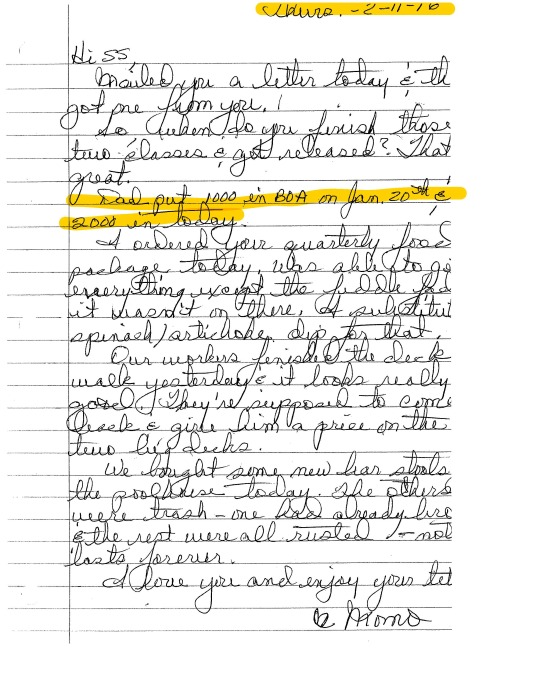 Thurs. - 2-11-16
Hi SS,
Mailed you a letter today & th
got one from you.
So when do you finish those
two classes & get released? That
great.
Dad put 1000 in BOA on Jan. 20th &
2000 in today.
I ordered your quarterly food
package today, was able to ge
everything except the fiddle fad
it wasn't on there. I substitut
spinach/artichoke dip for that.
Our workers finished the deck
walk yesterday & it looks really
good. They're supposed to come
back & give him a price on the
two big decks.
We bought some new bar stools
the poolhouse today. The others
were trash - one had already bro
& the rest were all rusted - not
lasts forever.
I love you and enjoy your let
Moms